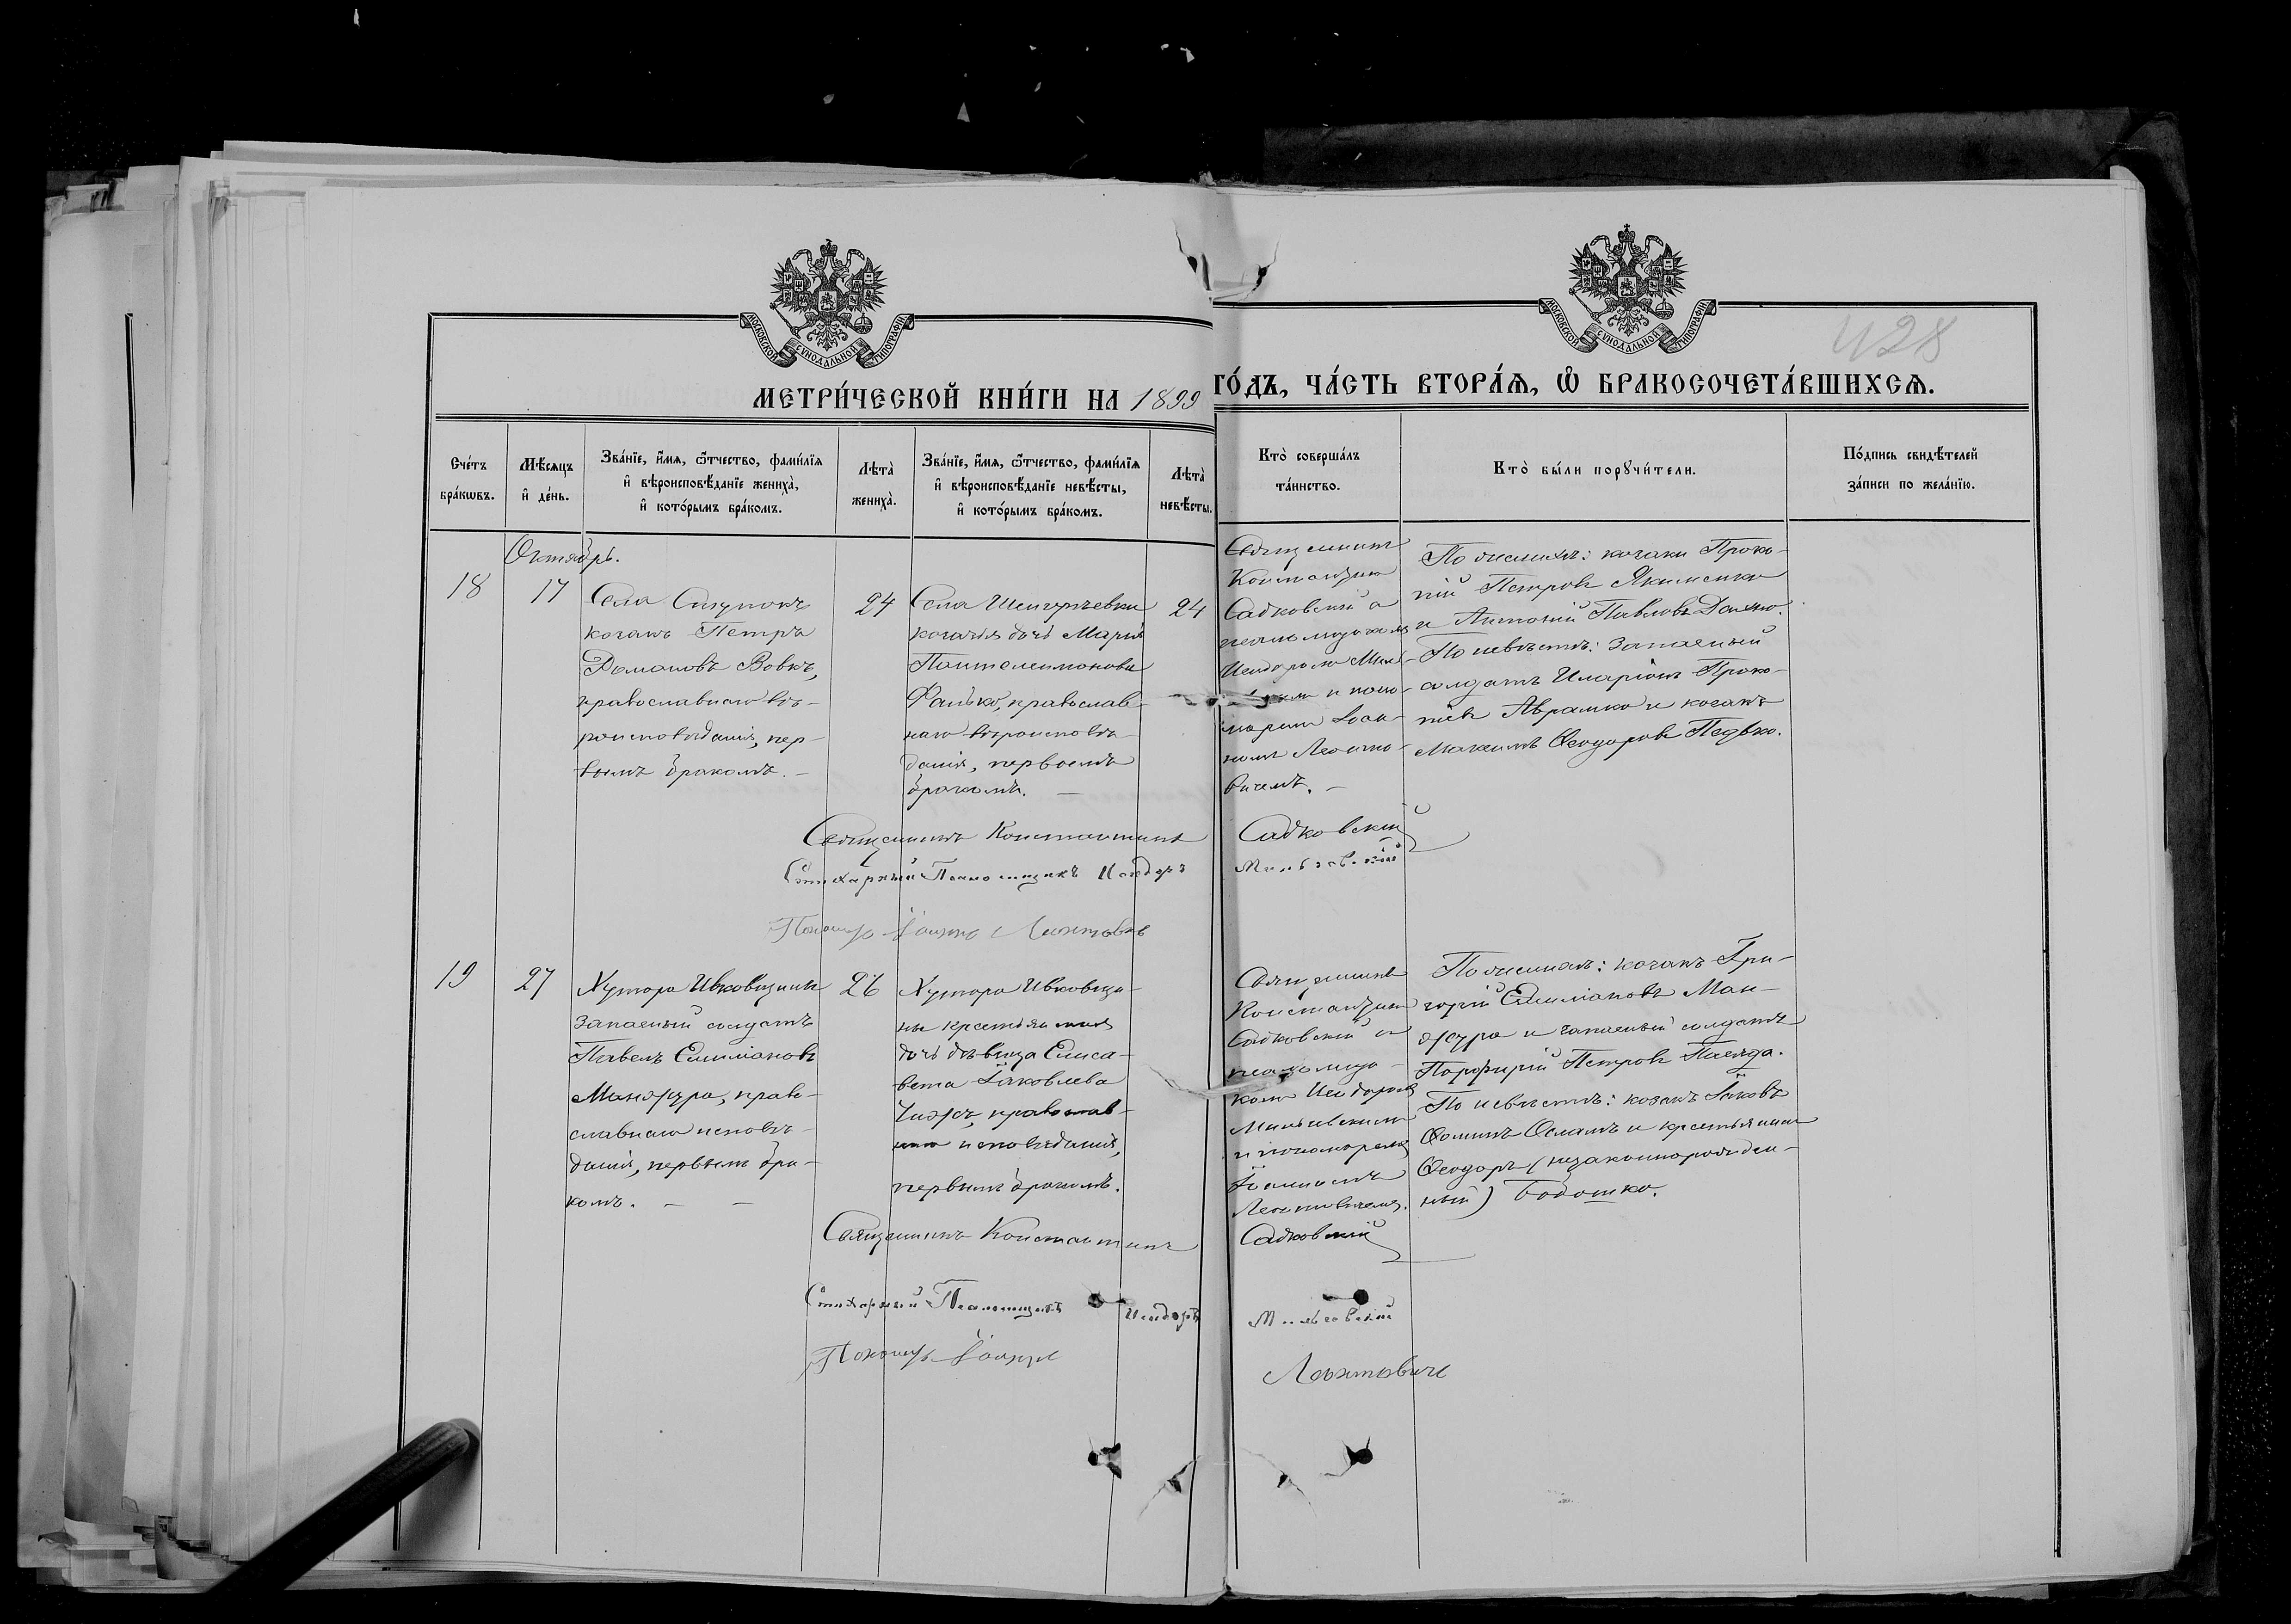 МОСКОВСКОЙ СѴНОДАЛЬНОЙ ТИПОГРАФІИ
МОСКОВСКОЙ СѴНОДАЛЬНОЙ ТИПОГРАФІИ
428
МЕТРИ́ЧЕСКОЙ КНИ́ГИ НА 1899 ГО́ДЪ, ЧА́СТЬ ВТОРА́Ѧ, Ѽ БРАКОСОЧЕТА́ВШИХСѦ.
Сче́тъ
бра́кωвъ.
Мѣ́сѧцъ
и҆ де́нь.
Зва́нїе, и҆́мѧ, ѻ҆́тчество, фами́лїѧ
и҆ вѣроисповѣ́данїе жениха̀,
и҆ кото́рымъ бра́комъ.
Лѣта̀
жениха̀.
Зва́нїе, и҆́мѧ, ѻ҆́тчество, фами́лїѧ
и҆ вѣроисповѣ́данїе невѣ́сты,
и҆ кото́рымъ бра́комъ.
Лѣта̀
невѣ́сты.
Кто̀ соверша́лъ
та́инство.
Кто̀ бы́ли порꙋчи́тели.
По́дпись свидѣ́телей
за́писи по жела́нїю.
Октябрь.
18
17
Села
козакъ Петръ
Домановъ Вовкъ,
православнаго вѣ-
роисповѣданія, пер-
вымъ бракомъ. —
24
Села
козачья дочь Марія
Пантелеимонова
Фалько, православ-
наго вѣроисповѣ-
данія, первымъ
бракомъ. —
24
Священникъ
Константинъ
Садковскій съ
псаломщикомъ
Исидоромъ
и поно-
маремъ Іоан-
номъ Леонто-
вичемъ. —
По женихѣ: козаки Проко-
пій Петровъ Якименко
и Антоній Павловъ
По невѣстѣ: запасный
солдатъ Иларіонъ Проко-
піевъ Авраменко и козакъ
Максимъ Ѳеодоровъ Педько.
Священникъ Константинъ Садковскій
Стихарный Псаломщикъ Исидоръ
Пономарь Іоаннъ Леонтовичъ
19
27
Хутора Ивковщины
запасный солдатъ
Павелъ Емиліановъ
Манжура, право-
славнаго исповѣ-
данія, первымъ бра-
комъ. — —
26
Хутора Ивковщи-
ны крестьянская
дочь дѣвица Елиса-
вета Іаковлева
православ-
наго исповѣданія,
первымъ бракомъ.
Священникъ
Константинъ
Садковскій съ
псаломщи-
комъ Исидоромъ
и пономаремъ
Іоанномъ
Леонтовичемъ.
По женихѣ: козакъ Гри-
горій Емиліановъ Ман-
жура и запасный солдатъ
Порфирій Петровъ
По невѣстѣ: козакъ Іаковъ
Ѳоминъ и крестьянинъ
Ѳеодоръ (незаконнорожден-
ный) Бободико.
Священникъ Константинъ Садковскій
Стихарный Псаломщикъ Исидоръ
Пономарь Іоаннъ Леонтовичъ